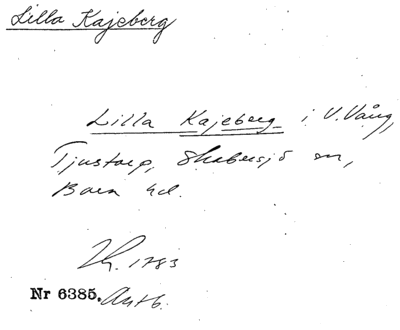 Lilla Kajeberg
Lilla Kajeberg i V. Vång,
Tjustorp, Skabersjö sn,
Bara hd.
1783
Nr 6385. Antb.